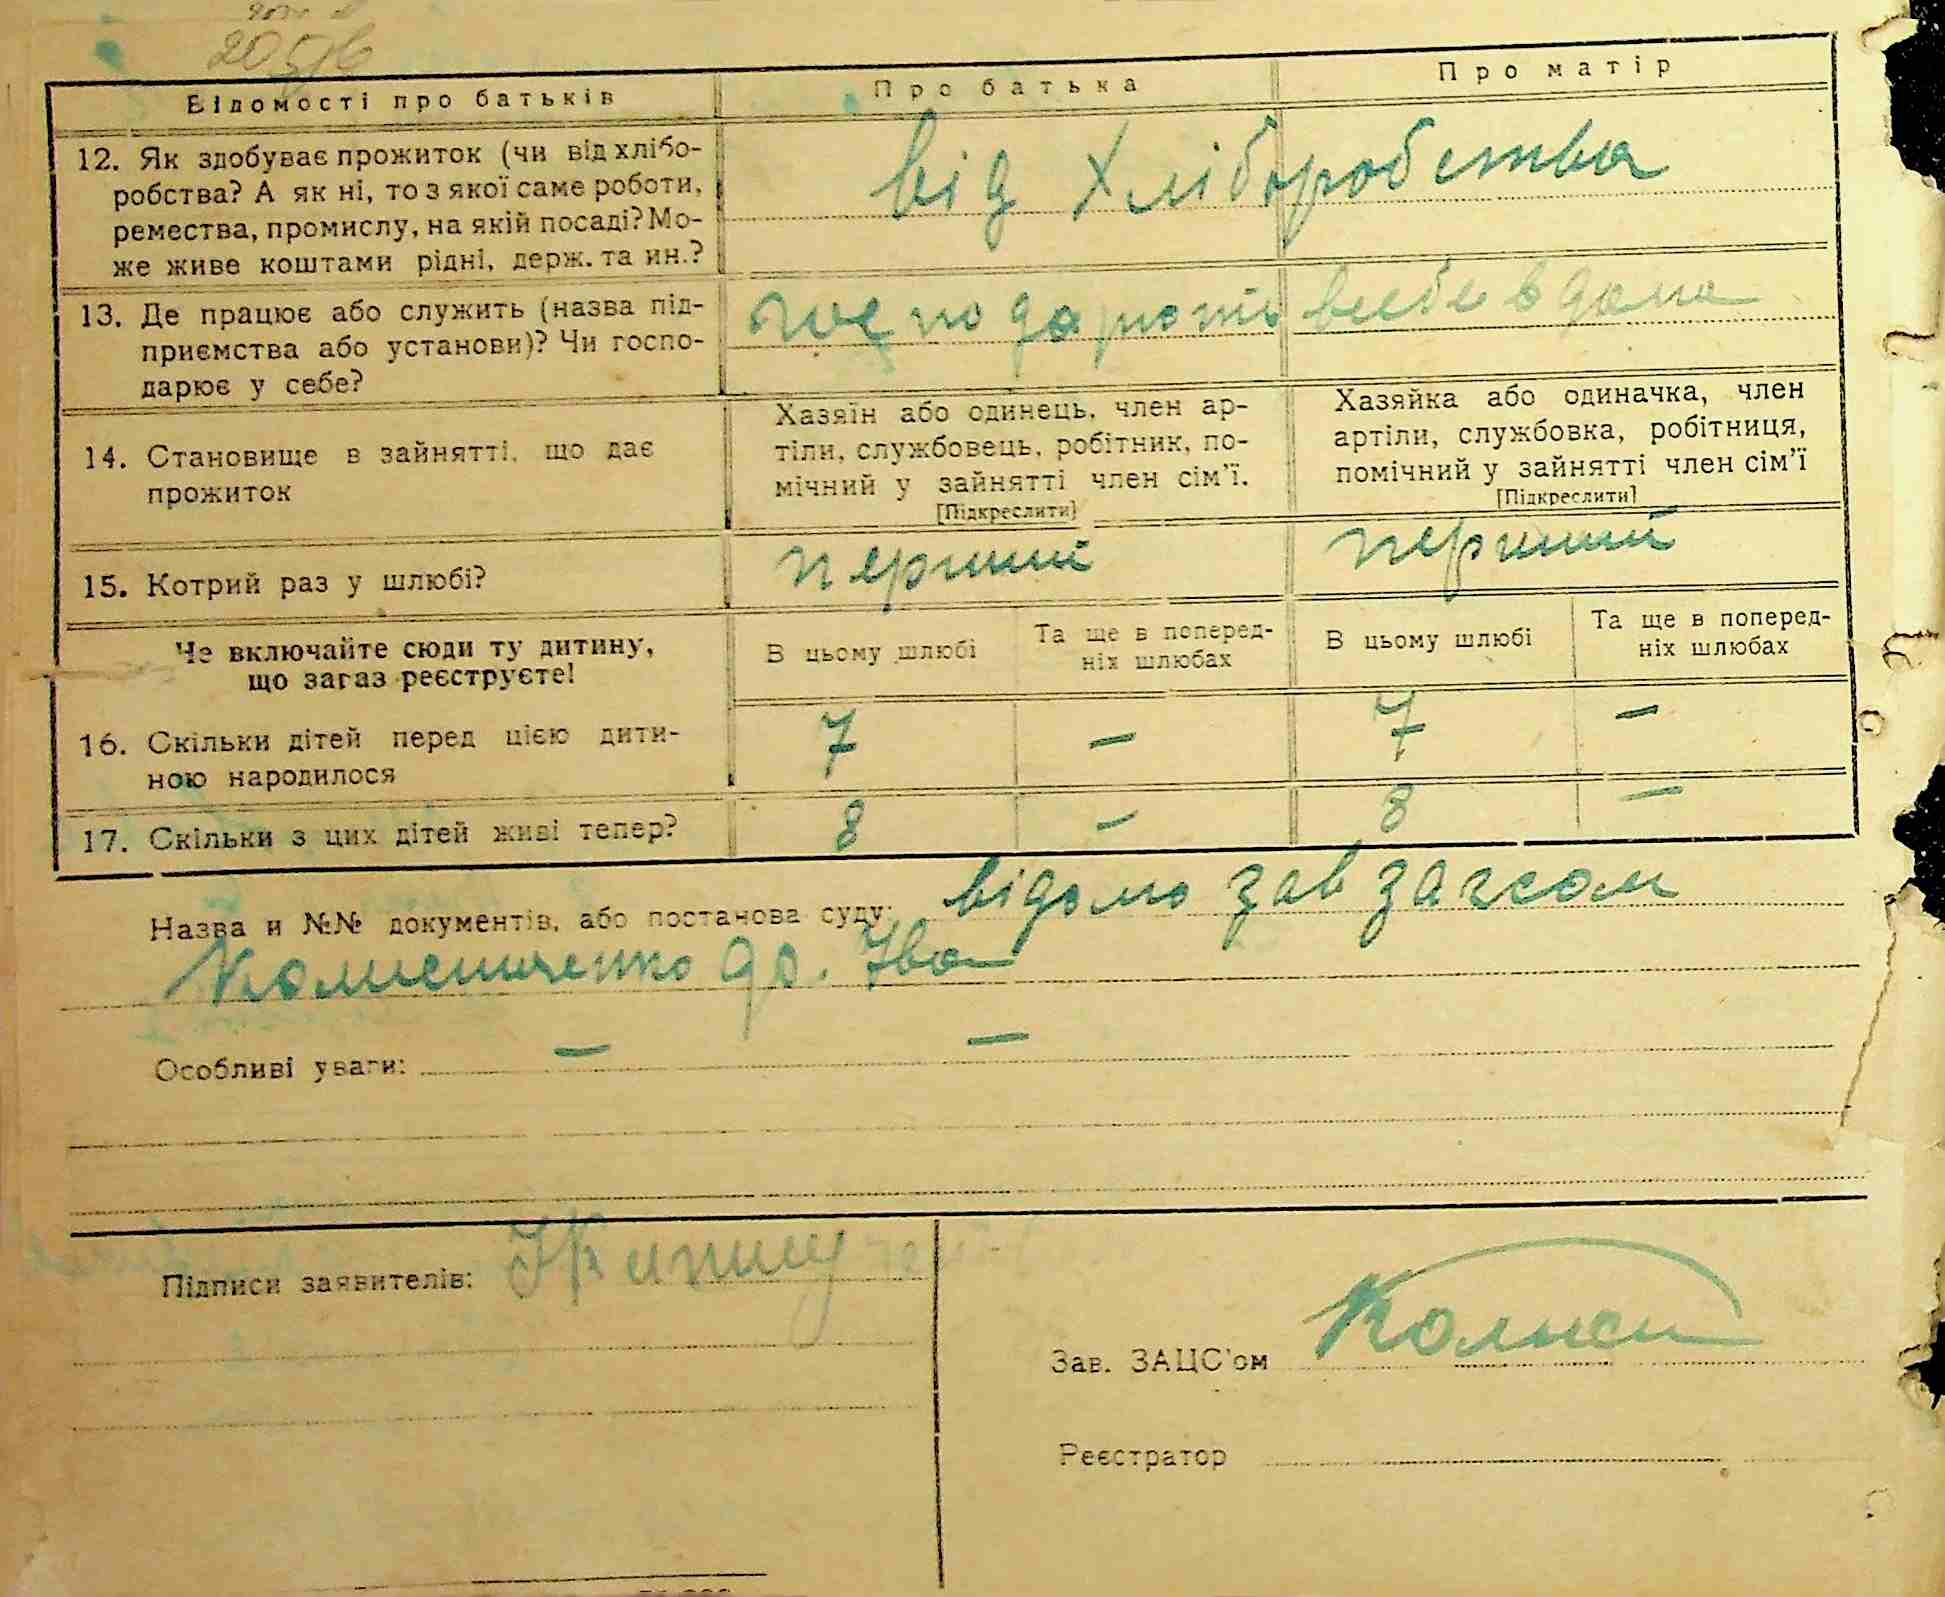 205/6
Відомості про батьків
Про батька
Про матір
12. Як здобуває прожиток (чи від хлібо-
робства? А як ні, то з якої саме роботи,
ремества, промислу, на якій посаді? Мо-
же живе коштами рідні, держ. та ин.?
від хліборобства
13. Де працює або служить (назва під-
приємства або установи)? Чи госпо-
дарює у себе?
14. Становище в зайнятті, що дає
прожиток
Хазяїн або одинець, член ар-
тіли, службовець, робітник, по-
мічний у зайнятті член сім'ї.
[Підкреслити]
Хазяйка або одиначка, член
артіли, службовка, робітниця,
помічний у зайнятті член сім'ї
[Підкреслити]
15. Котрий раз у шлюбі?
перший
перший
Не включайте сюди ту дитину,
що зараз реєструєте!
В цьому шлюбі
Та ще в поперед-
ніх шлюбах
В цьому шлюбі
Та ще в поперед-
ніх шлюбах
16. Скільки дітей перед цією дити-
ною народилося
7 — 7 —
17. Скільки з цих дітей живі тепер?
8 — 8 —
Назва и №№ документів, або постанова суду: відомо зав загсом
Особливі уваги: — —
Підписи заявителів:
Зав. ЗАЦС'ом
Реєстратор